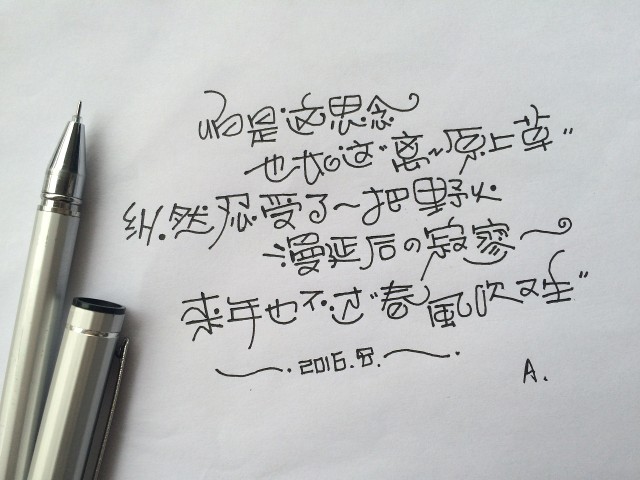 怕是这思念
也如这“离~原上草”
纵然忍受了一把野火
漫延后の寂寥
来年也不过“春風吹又生”
2016.
A.